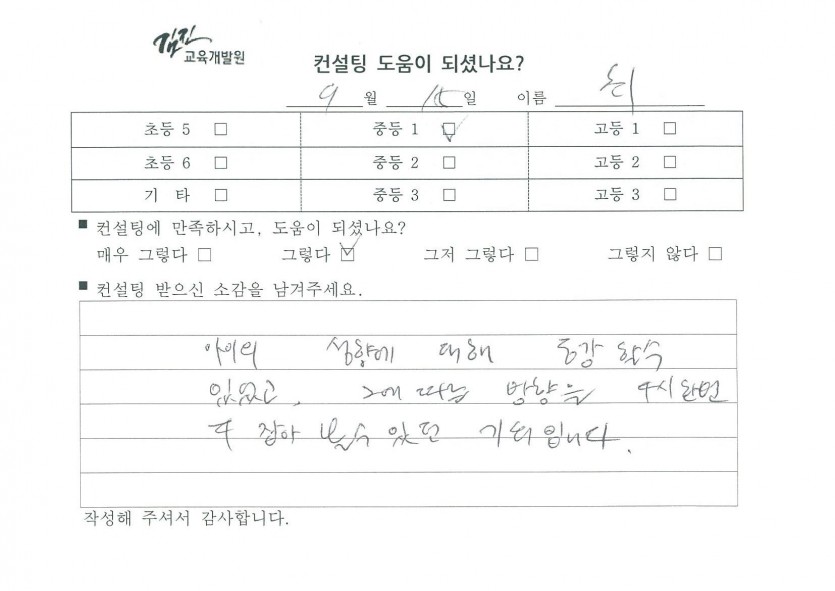 김진
교육개발원
컨설팅 도움이 되셨나요?
9월 15일 이름
초등 5 □ 중등 1 ☑ 고등 1 □
초등 6 □ 중등 2 □ 고등 2 □
기 타 □ 중등 3 □ 고등 3 □
■ 컨설팅에 만족하시고, 도움이 되셨나요?
매우 그렇다 □ 그렇다 ☑ 그저 그렇다 □ 그렇지 않다 □
■ 컨설팅 받으신 소감을 남겨주세요.
아이의 성향에 대해 공감 할수
있었고, 그에 따른 방향을 다시한번
더 잡아 볼수 있던 기회입니다.
작성해 주셔서 감사합니다.